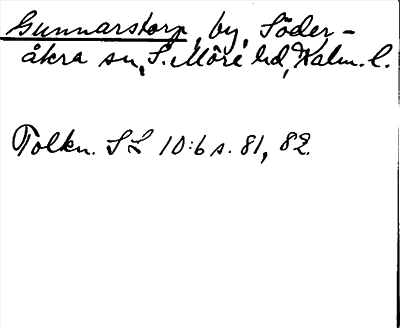 Gunnarstorp, by, Söder-
åkra sn, S. Möre hd, Kalm. l.
Tolkn. SL 10:6 s. 81, 82.